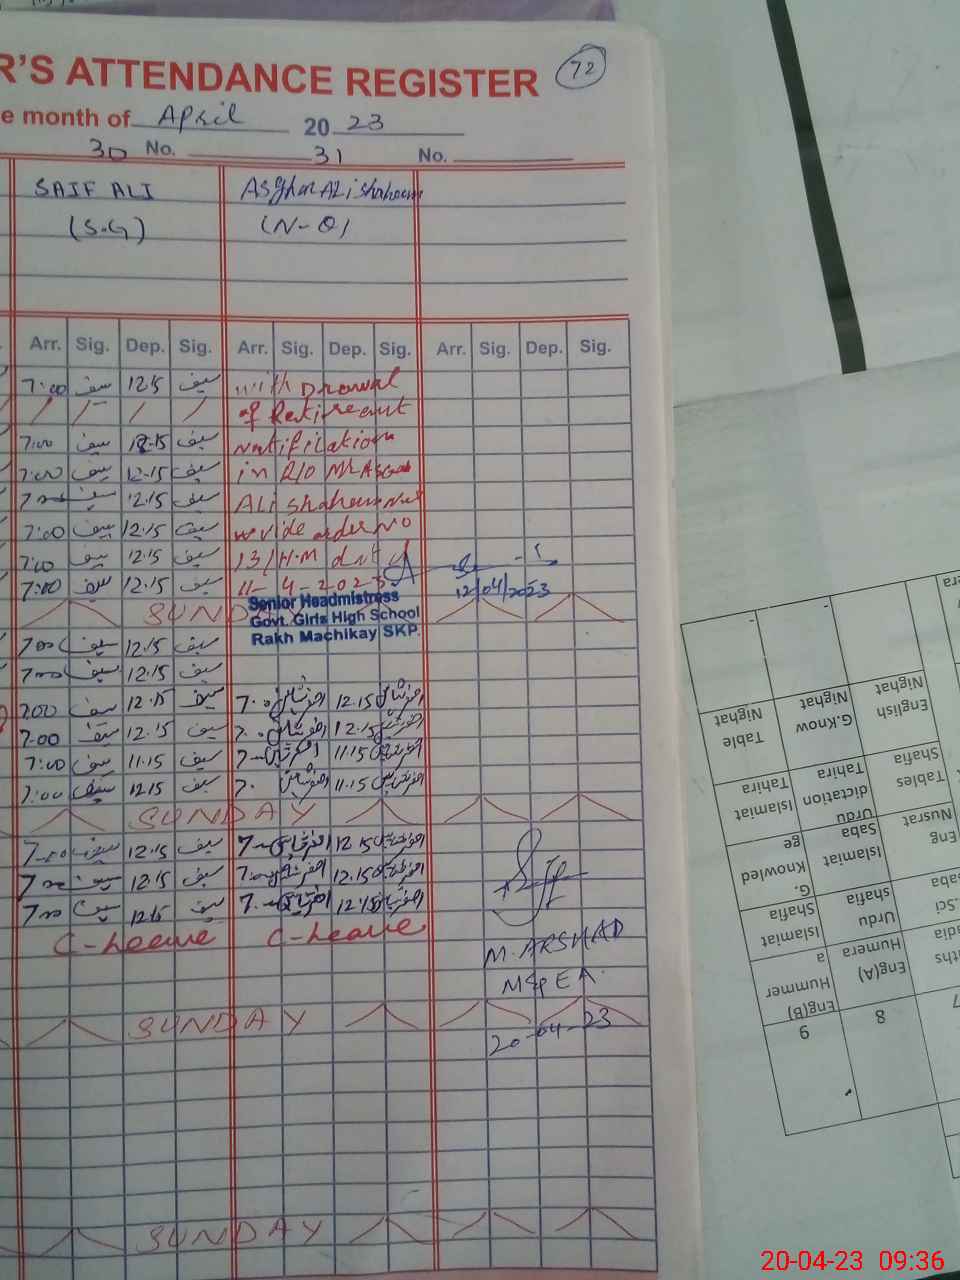 72
R'S ATTENDANCE REGISTER
e month of April 2023
30 No. 31 No.
SAIF ALI Asghar ALi shaheen
(S.G) (N-Q)
Arr. Sig. Dep. Sig. Arr. Sig. Dep. Sig. Arr. Sig. Dep. Sig.
7:00 سیف 12.15 سیف with Drawal
/ / / / of Retirement
7:00 سیف 12.15 سیف notification
7:00 سیف 12.15 سیف in R/O Mr Asgar
7:00 سیف 12.15 سیف ALi shaheen
7:00 سیف 12.15 سیف vide order No
7:00 سیف 12.15 سیف 131/H.M dat
7:00 سیف 12.15 سیف 11-4-2023 12/04/2023
SUNDAY
Senior Headmistress
Govt. Girls High School
Rakh Machikay SKP.
7:00 سیف 12.15 سیف
7:00 سیف 12.15 سیف
7:00 سیف 12.15 سیف 7.0 12.15
7.00 سیف 12.15 سیف 7.0 12.15
7:00 سیف 11.15 سیف 7- 11.15
7:00 سیف 12.15 سیف 7.0 11.15
SUNDAY
7:00 سیف 12.15 سیف 7- 12.15
7:00 سیف 12.15 سیف 7.00 12.15
7:00 سیف 12.15 سیف 7.- 12.15
C-Leave C-Leave
M. ARSHAD
MEPEA.
SUNDAY
20-04-23
SUNDAY
Table Nighat
G.Know Nighat
English Nighat
Islamiat Tahira
Urdu dictation Tahira
Tables Shafia
G. Knowledge
Islamiat Saba
Eng Nusrat
Islamiat Shafia
Urdu shafia
Eng(B) Hummera
Eng(A) Humera
9
8
7
20-04-23 09:36